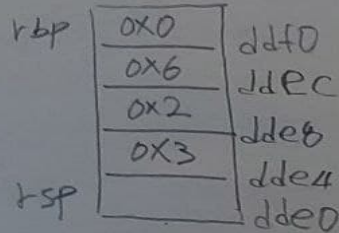 rbp 0x0 ddf0
0x6 ddec
0x2 dde8
0x3 dde4
rsp dde0